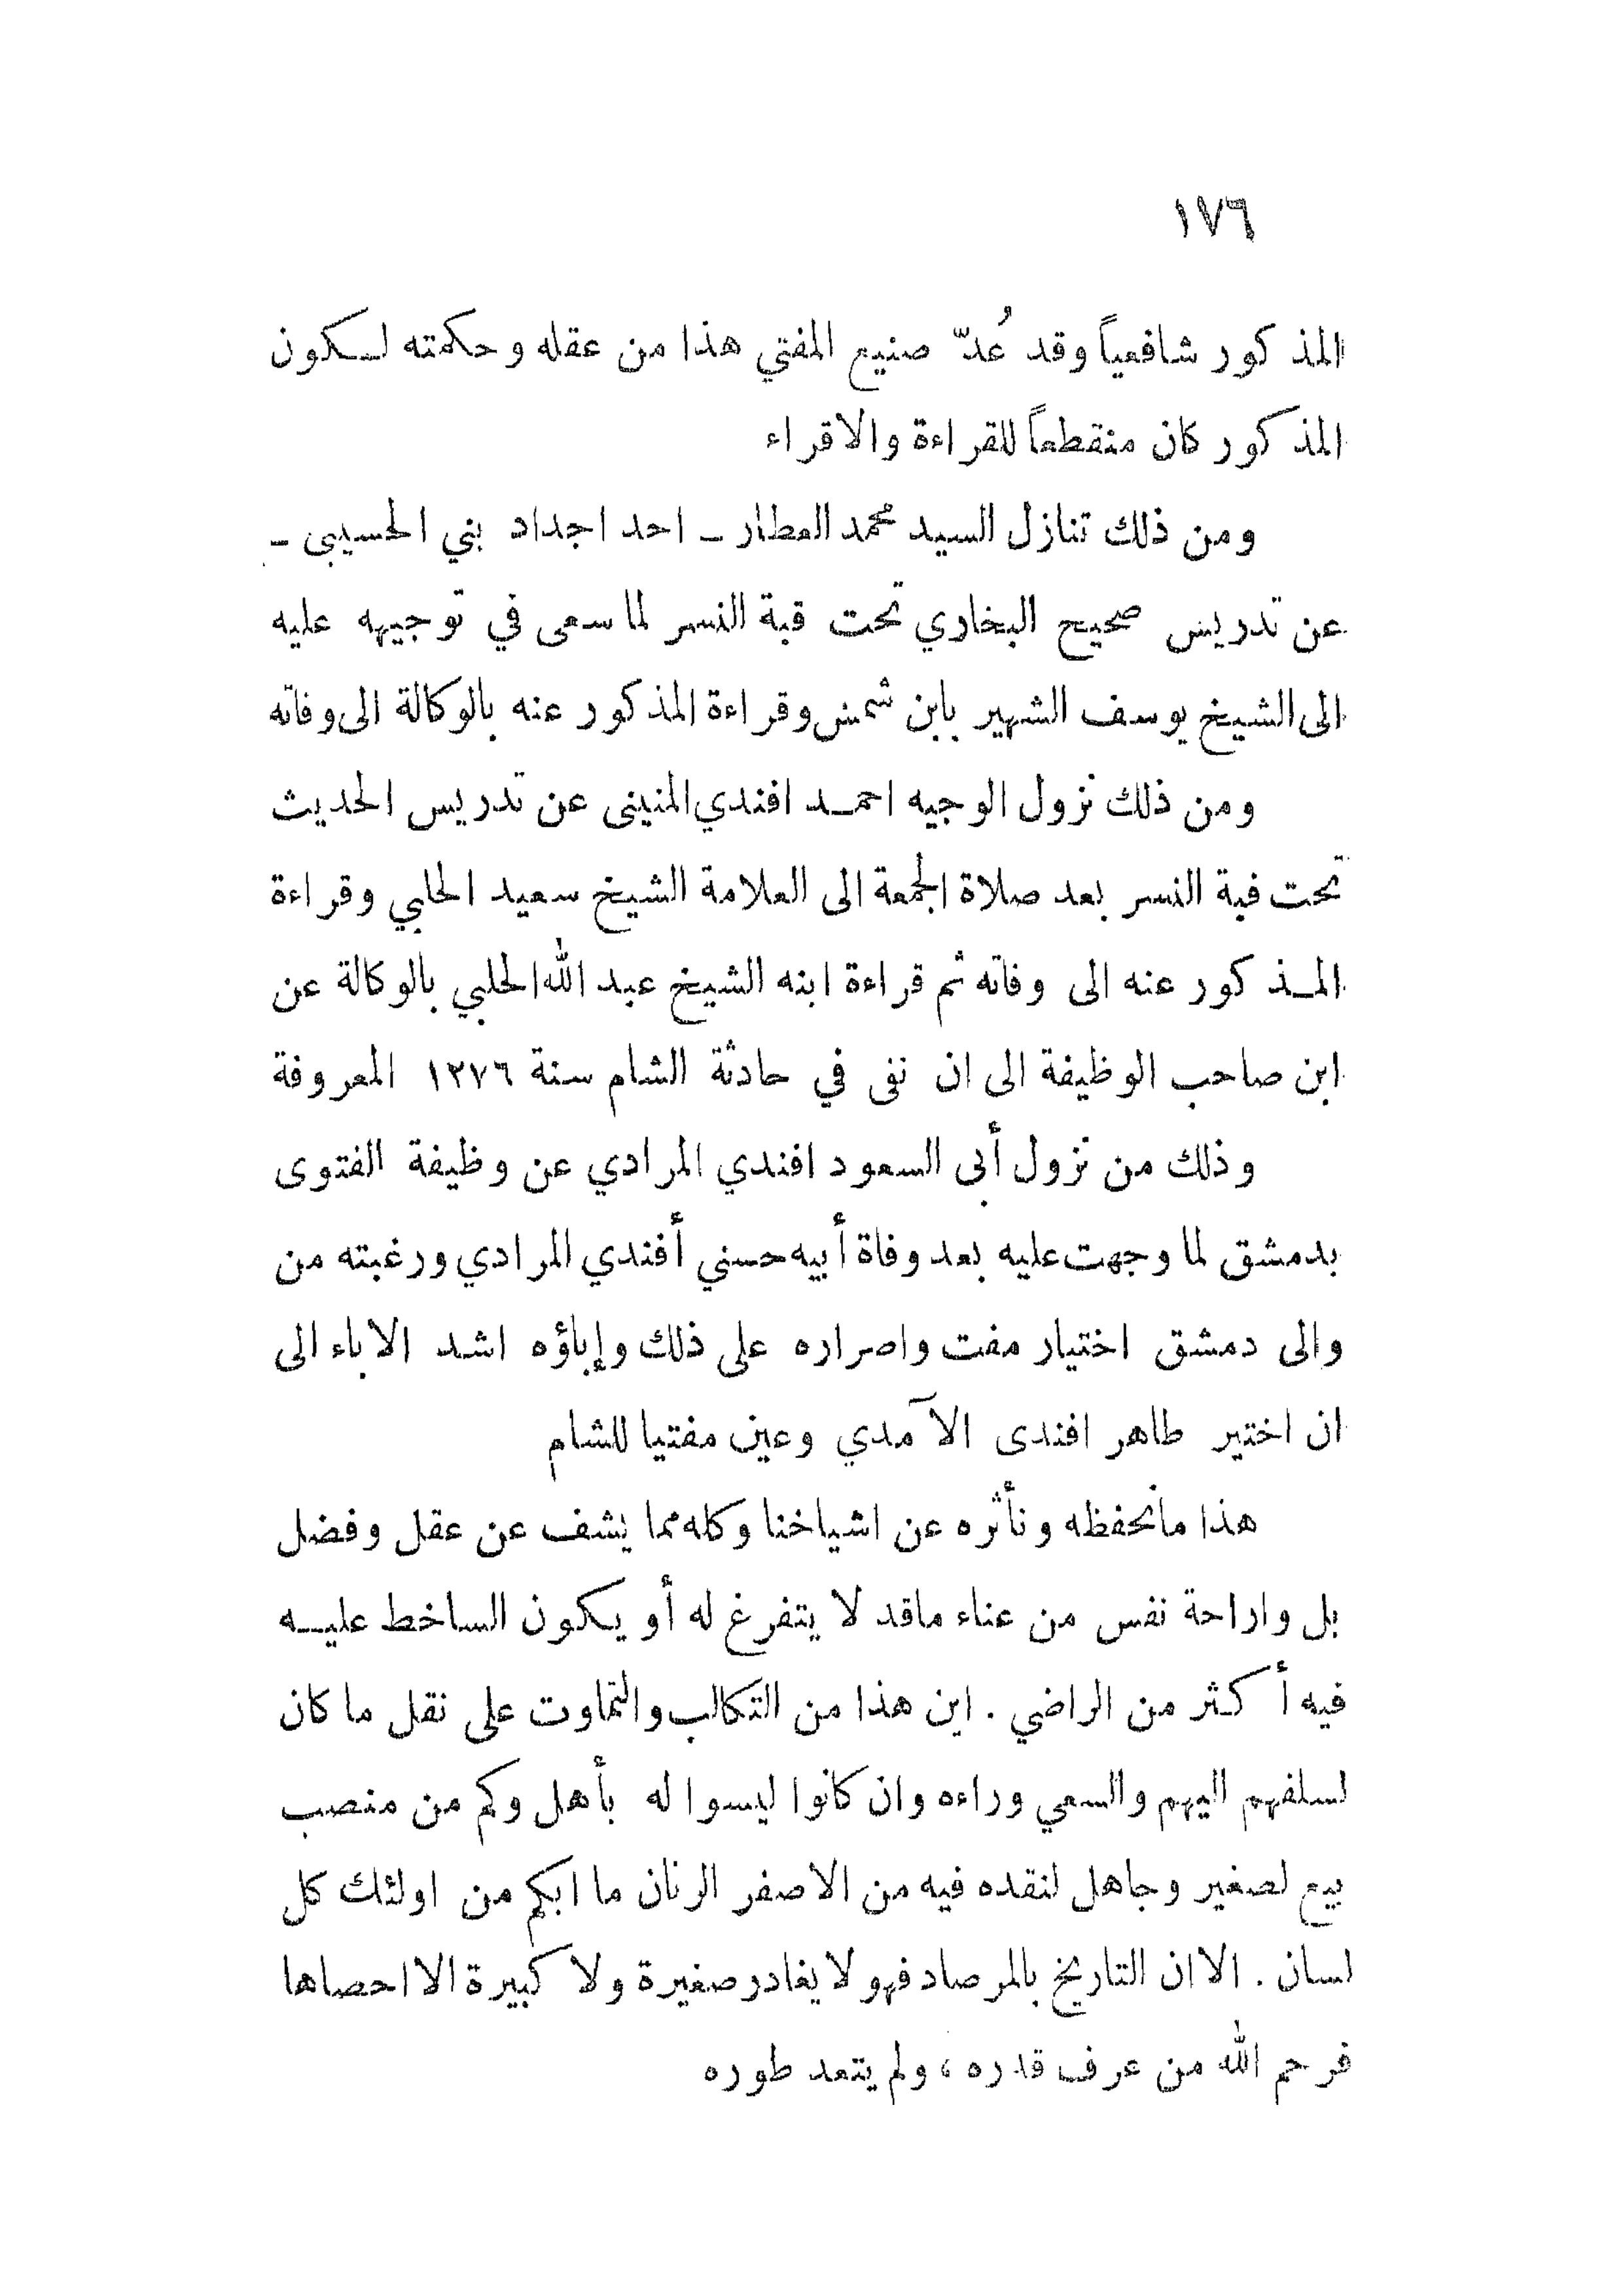 ١٧٦
المذكور شافعياً وقد عُدّ صنيع المفتي هذا من عقله وحكمته لكون
المذكور كان منقطعاً للقراءة والاقراء
ومن ذلك تنازل السيد محمد العطار ــ احد اجداد بني الحسيبى ــ
عن تدريس صحيح البخاري تحت قبة النسر لما سعى في توجيهه عليه
الى الشيخ يوسف الشهير بابن شمس وقراءة المذكور عنه بالوكالة الى وفاته
ومن ذلك نزول الوجيه احمد افندي المنينى عن تدريس الحديث
تحت قبة النسر بعد صلاة الجمعة الى العلامة الشيخ سعيد الحلبي وقراءة
المذكور عنه الى وفاته ثم قراءة ابنه الشيخ عبد الله الحلبي بالوكالة عن
ابن صاحب الوظيفة الى ان نفى في حادثة الشام سنة ١٢٧٦ المعروفة
وذلك من نزول أبى السعود افندي المرادي عن وظيفة الفتوى
بدمشق لما وجهت عليه بعد وفاة أبيه حسني أفندي المرادي ورغبته من
والى دمشق اختيار مفت واصراره على ذلك وإباؤه اشد الاباء الى
ان اختير طاهر افندى الآمدي وعين مفتيا للشام
هذا مانحفظه ونأثره عن اشياخنا وكله مما يشف عن عقل وفضل
بل واراحة نفس من عناء ماقد لا يتفرغ له أو يكون الساخط عليه
فيه أكثر من الراضي . اين هذا من التكالب والتماوت على نقل ما كان
لسلفهم اليهم والسعي وراءه وان كانوا ليسوا له بأهل وكم من منصب
بيع لصغير وجاهل لنقده فيه من الاصفر الرنان ما ابكم من اولئك كل
لسان . الا ان التاريخ بالمرصاد فهو لا يغادر صغيرة ولا كبيرة الا احصاها
فرحم الله من عرف قدره ، ولم يتعد طوره